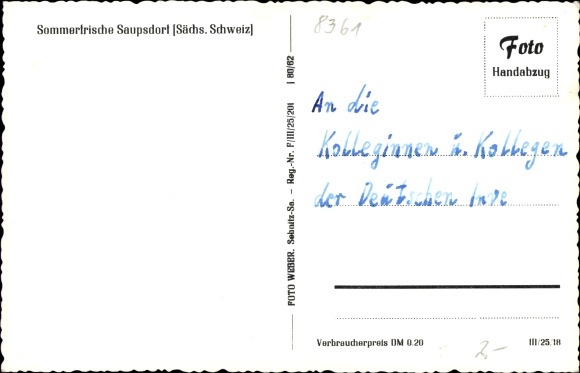 Sommerfrische Saupsdorf [Sächs. Schweiz]
8361
Foto
Handabzug
An die
Kolleginnen u. Kollegen
der Deutschen Inve
FOTO WEBER. Sebnitz-Sa. – Reg.-Nr. F/III/25/201 I 80/62
Verbraucherpreis DM 0.20
III/25,18
2,-